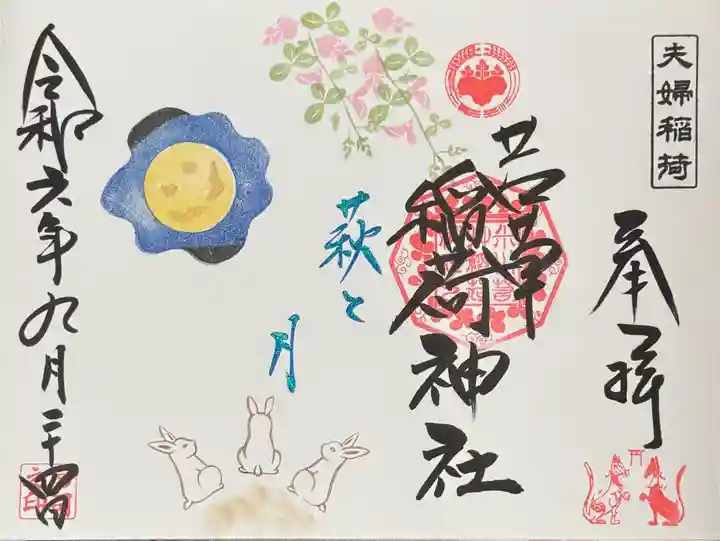 夫婦稲荷
奉拝
若草
稲荷神社
萩と
月
令和六年九月二十四日